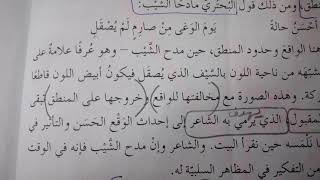 منطق، ومن ذلك قول البُحتري مادحًا الشَّيْب:
أحْسَنُ حالةً يومَ الوَغى مِنْ صارِمٍ لَمْ يُصْقَلِ
الواقعَ وحدود المنطق، حين مدح الشَّيْب – وهو عُرفًا علامةٌ على
من ناحية اللون بالسَّيْف الذي يُصقَل فيكونُ أبيض اللون قاطعًا
وهذه الصورة مع مخالفتها للواقع وخروجها على المنطق تبقى
المقبول، الذي يَرمي به الشَّاعر إلى إحداث الوَقْع الحَسَن والتأثير في
نَلْمَسه حين نقرأ البيت. والشاعر وإنْ مدح الشَّيْب فإنه في الوقت
من التفكير في المظاهر السلبيّة له